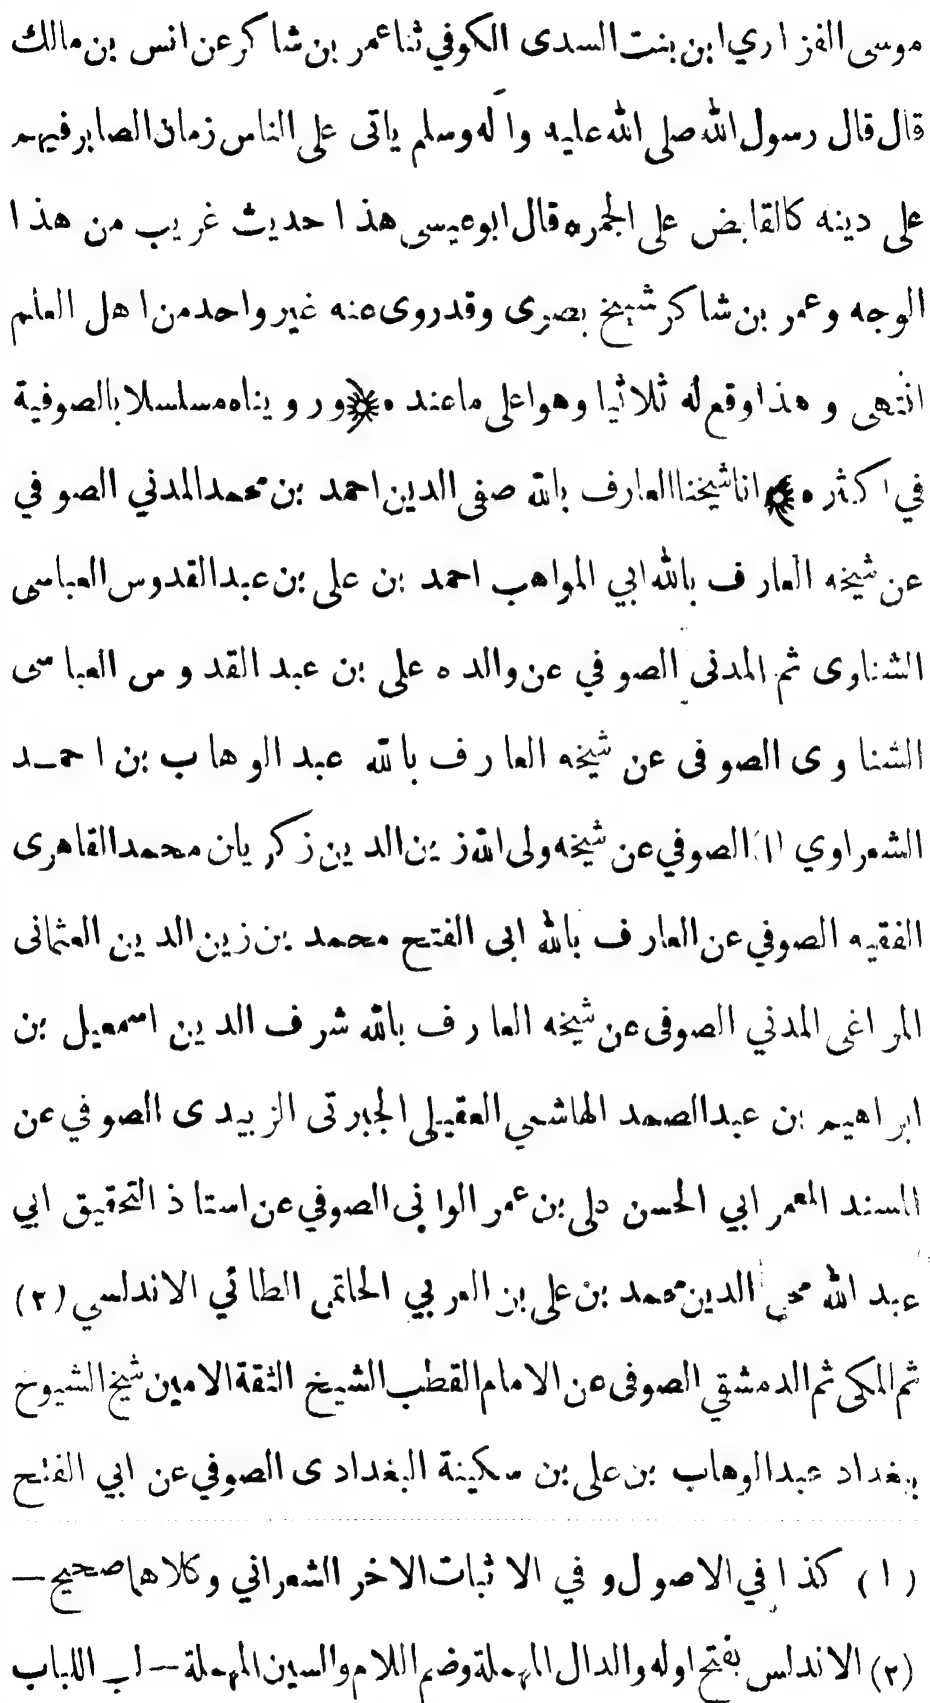 موسى الفزاري ابن بنت السدى الكوفي ثنا عمر بن شاكر عن انس بن مالك
قال قال رسول الله صلى الله عليه وآله وسلم ياتى على الناس زمان الصابر فيهم
على دينه كالقابض على الجمره قال ابو عيسى هذا حديث غريب من هذا
الوجه وعمر بن شاكر شيخ بصرى وقد روى عنه غير واحد من اهل العلم
انتهى و هذا وقع له ثلاثيا وهو اعلى ما عنده ورويناه مسلسلا بالصوفية
في اكثره انا شيخنا العارف بالله صفى الدين احمد بن محمد المدني الصوفي
عن شيخه العارف بالله ابي المواهب احمد بن على بن عبد القدوس العباسى
الشناوى ثم المدنى الصوفي عن والده على بن عبد القدوس العباسى
الشناوى الصوفى عن شيخه العارف بالله عبد الوهاب بن احمد
الشعراوي (١) الصوفي عن شيخه ولى الله زين الدين زكريا بن محمد القاهرى
الفقيه الصوفي عن العارف بالله ابى الفتح محمد بن زين الدين العثمانى
المراغى المدني الصوفى عن شيخه العارف بالله شرف الدين اسمعيل بن
ابراهيم بن عبد الصمد الهاشمي العقيلى الجبرتى الزبيدى الصوفي عن
المسند المعمر ابي الحسن على بن عمر الوانى الصوفي عن استاذ التحقيق ابي
عبد الله محى الدين محمد بن على بن العربي الحاتمى الطائي الاندلسي (٢)
ثم المكى ثم الدمشقي الصوفى عن الامام القطب الشيخ الثقة الامين شيخ الشيوخ
ببغداد عبد الوهاب بن على بن سكينة البغدادى الصوفي عن ابي الفتح
(١) كذا في الاصول و في الاثبات الاخر الشعراني وكلاهما صحيح —
(٢) الاندلس بفتح اوله والدال المهملة وضم اللام والسين المهملة — لب اللباب